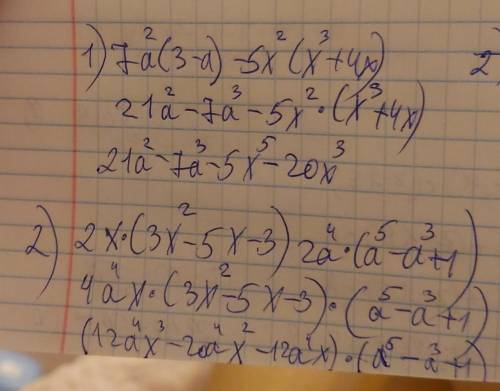 1) 7a²(3-a) -5x²(x³+4x) 2
21a²-7a³-5x²·(x³+4x)
21a²-7a³-5x⁵-20x³
2) 2x·(3x²-5x-3) 2a⁴·(a⁵-a³+1)
4a⁴x·(3x²-5x-3)·(a⁵-a³+1)
(12a⁴x³-20a⁴x²-12a⁴x)·(a⁵-a³+1)